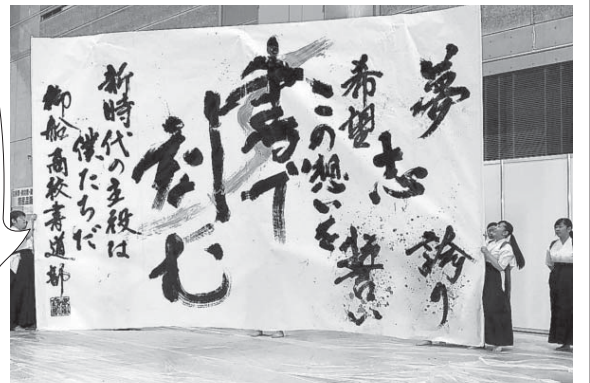 夢
志
誇り
希望
誓い
この想いを
書で
刻む
新時代の主役は
僕たちだ
御船高校書道部